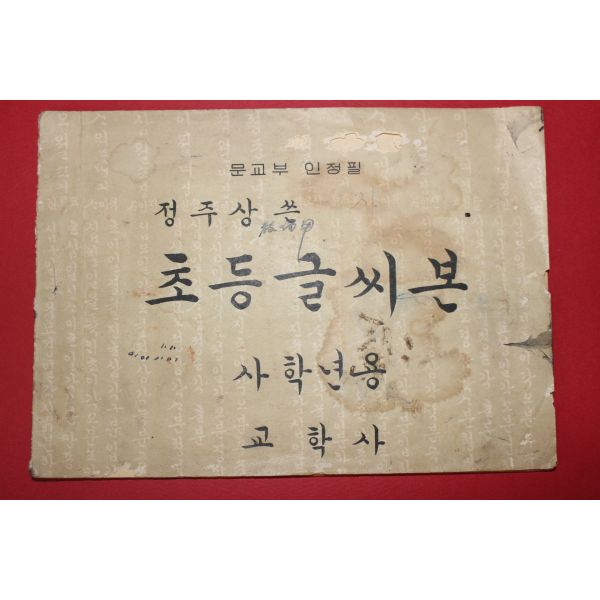 문교부 인정필
정주상 쓴
초등글씨본
사학년용
교학사